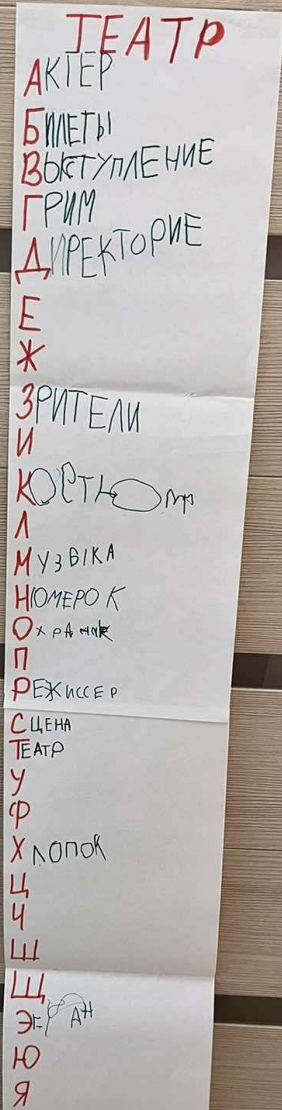 ТЕАТР
АКТЕР
БИЛЕТЫ
ВЫСТУПЛЕНИЕ
ГРИМ
ДИРЕКТОРИЕ
Е
Ж
ЗРИТЕЛИ
И
К
Л
МУЗЫКА
НОМЕРОК
ОХРАННИК
П
РЕЖИССЕР
СЦЕНА
ТЕАТР
У
Ф
ХЛОПОК
Ц
Ч
Ш
Щ
Э
Ю
Я